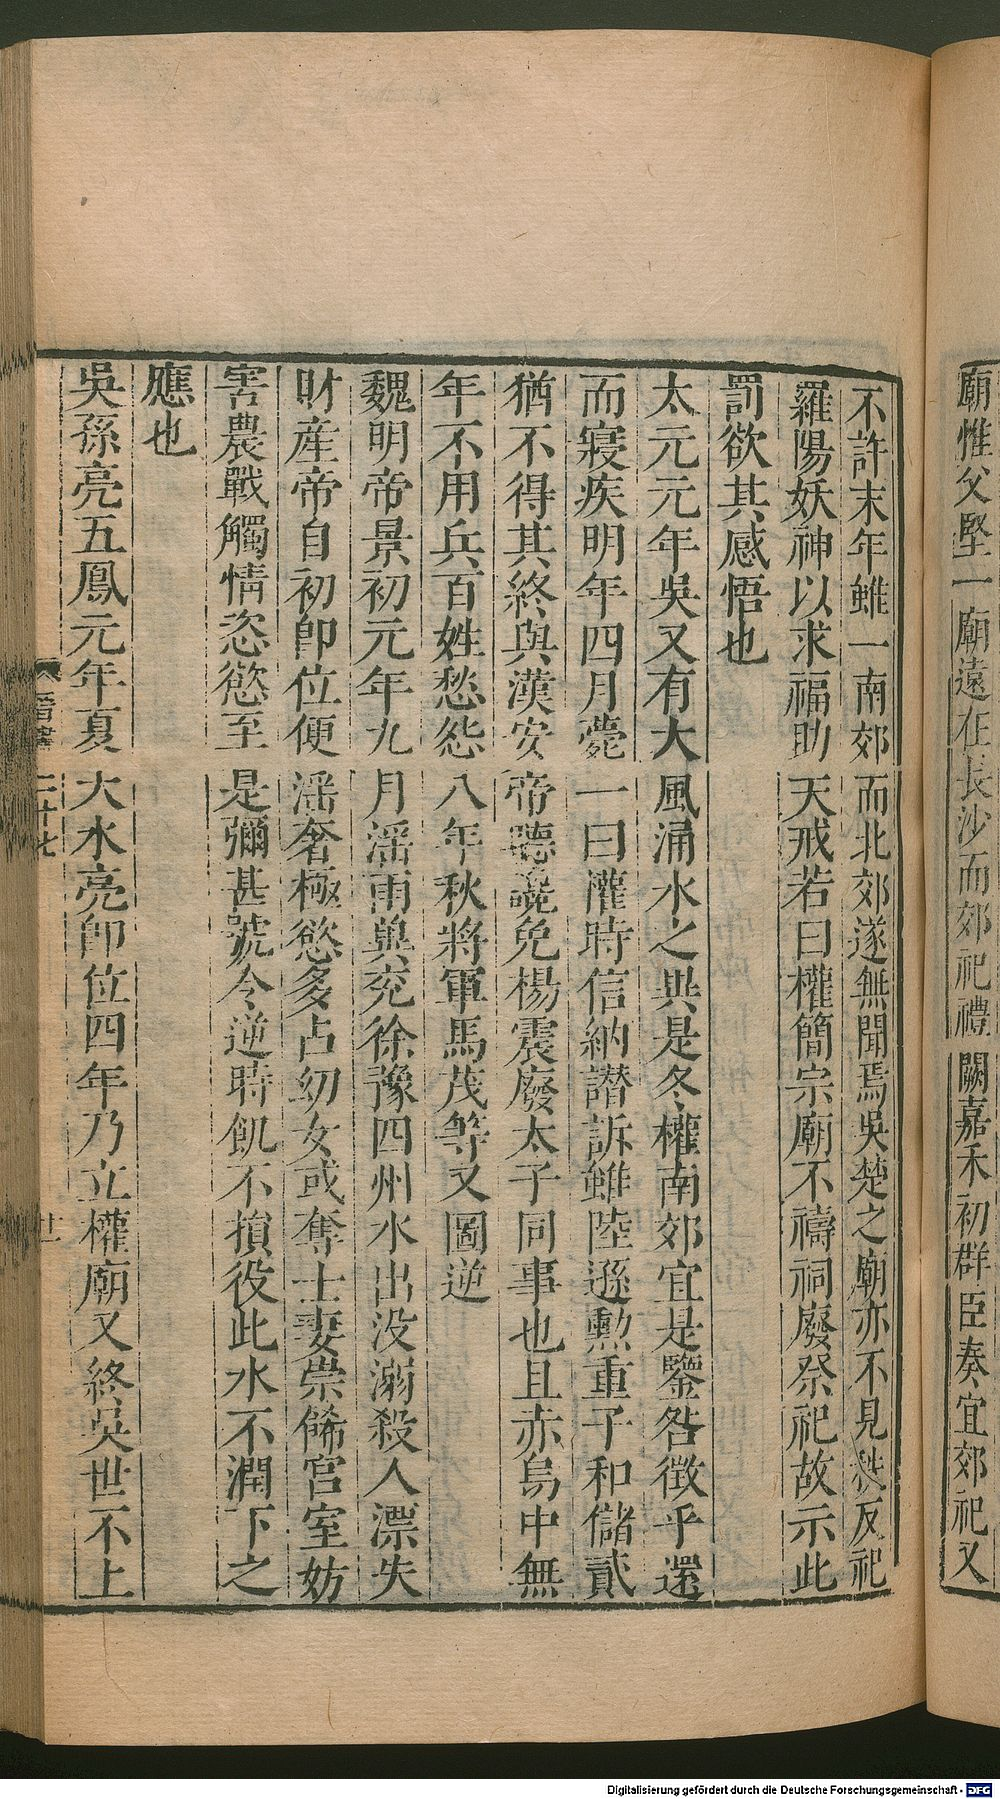 廟惟父堅一廟遠在長沙而郊祀禮闕嘉禾初群臣奏宜郊祀又
不許末年雖一南郊而北郊遂無聞焉吳楚之廟亦不見秩反祀
羅陽妖神以求福助天戒若曰權簡宗廟不禱祠廢祭祀故示此
罰欲其感悟也
太元元年吳又有大風涌水之異是冬權南郊宜是鑒咎徵乎還
而寢疾明年四月薨一曰權時信納譖訴雖陸遜勲重子和儲貳
猶不得其終與漢安帝聽讒免楊震廢太子同事也且赤烏中無
年不用兵百姓愁怨八年秋將軍馬茂等又圖逆
魏明帝景初元年九月淫雨兾兖徐豫四州水出没溺殺人漂失
財産帝自初即位便淫奢極慾多占幼女或奪士妻崇餙宫室妨
害農戰觸情恣慾至是彌甚號令逆時飢不損役此水不潤下之
應也
吳孫亮五鳳元年夏大水亮即位四年乃立權廟又終吳世不上
晉書二十七
廿一
Digitalisierung gefördert durch die Deutsche Forschungsgemeinschaft - DFG